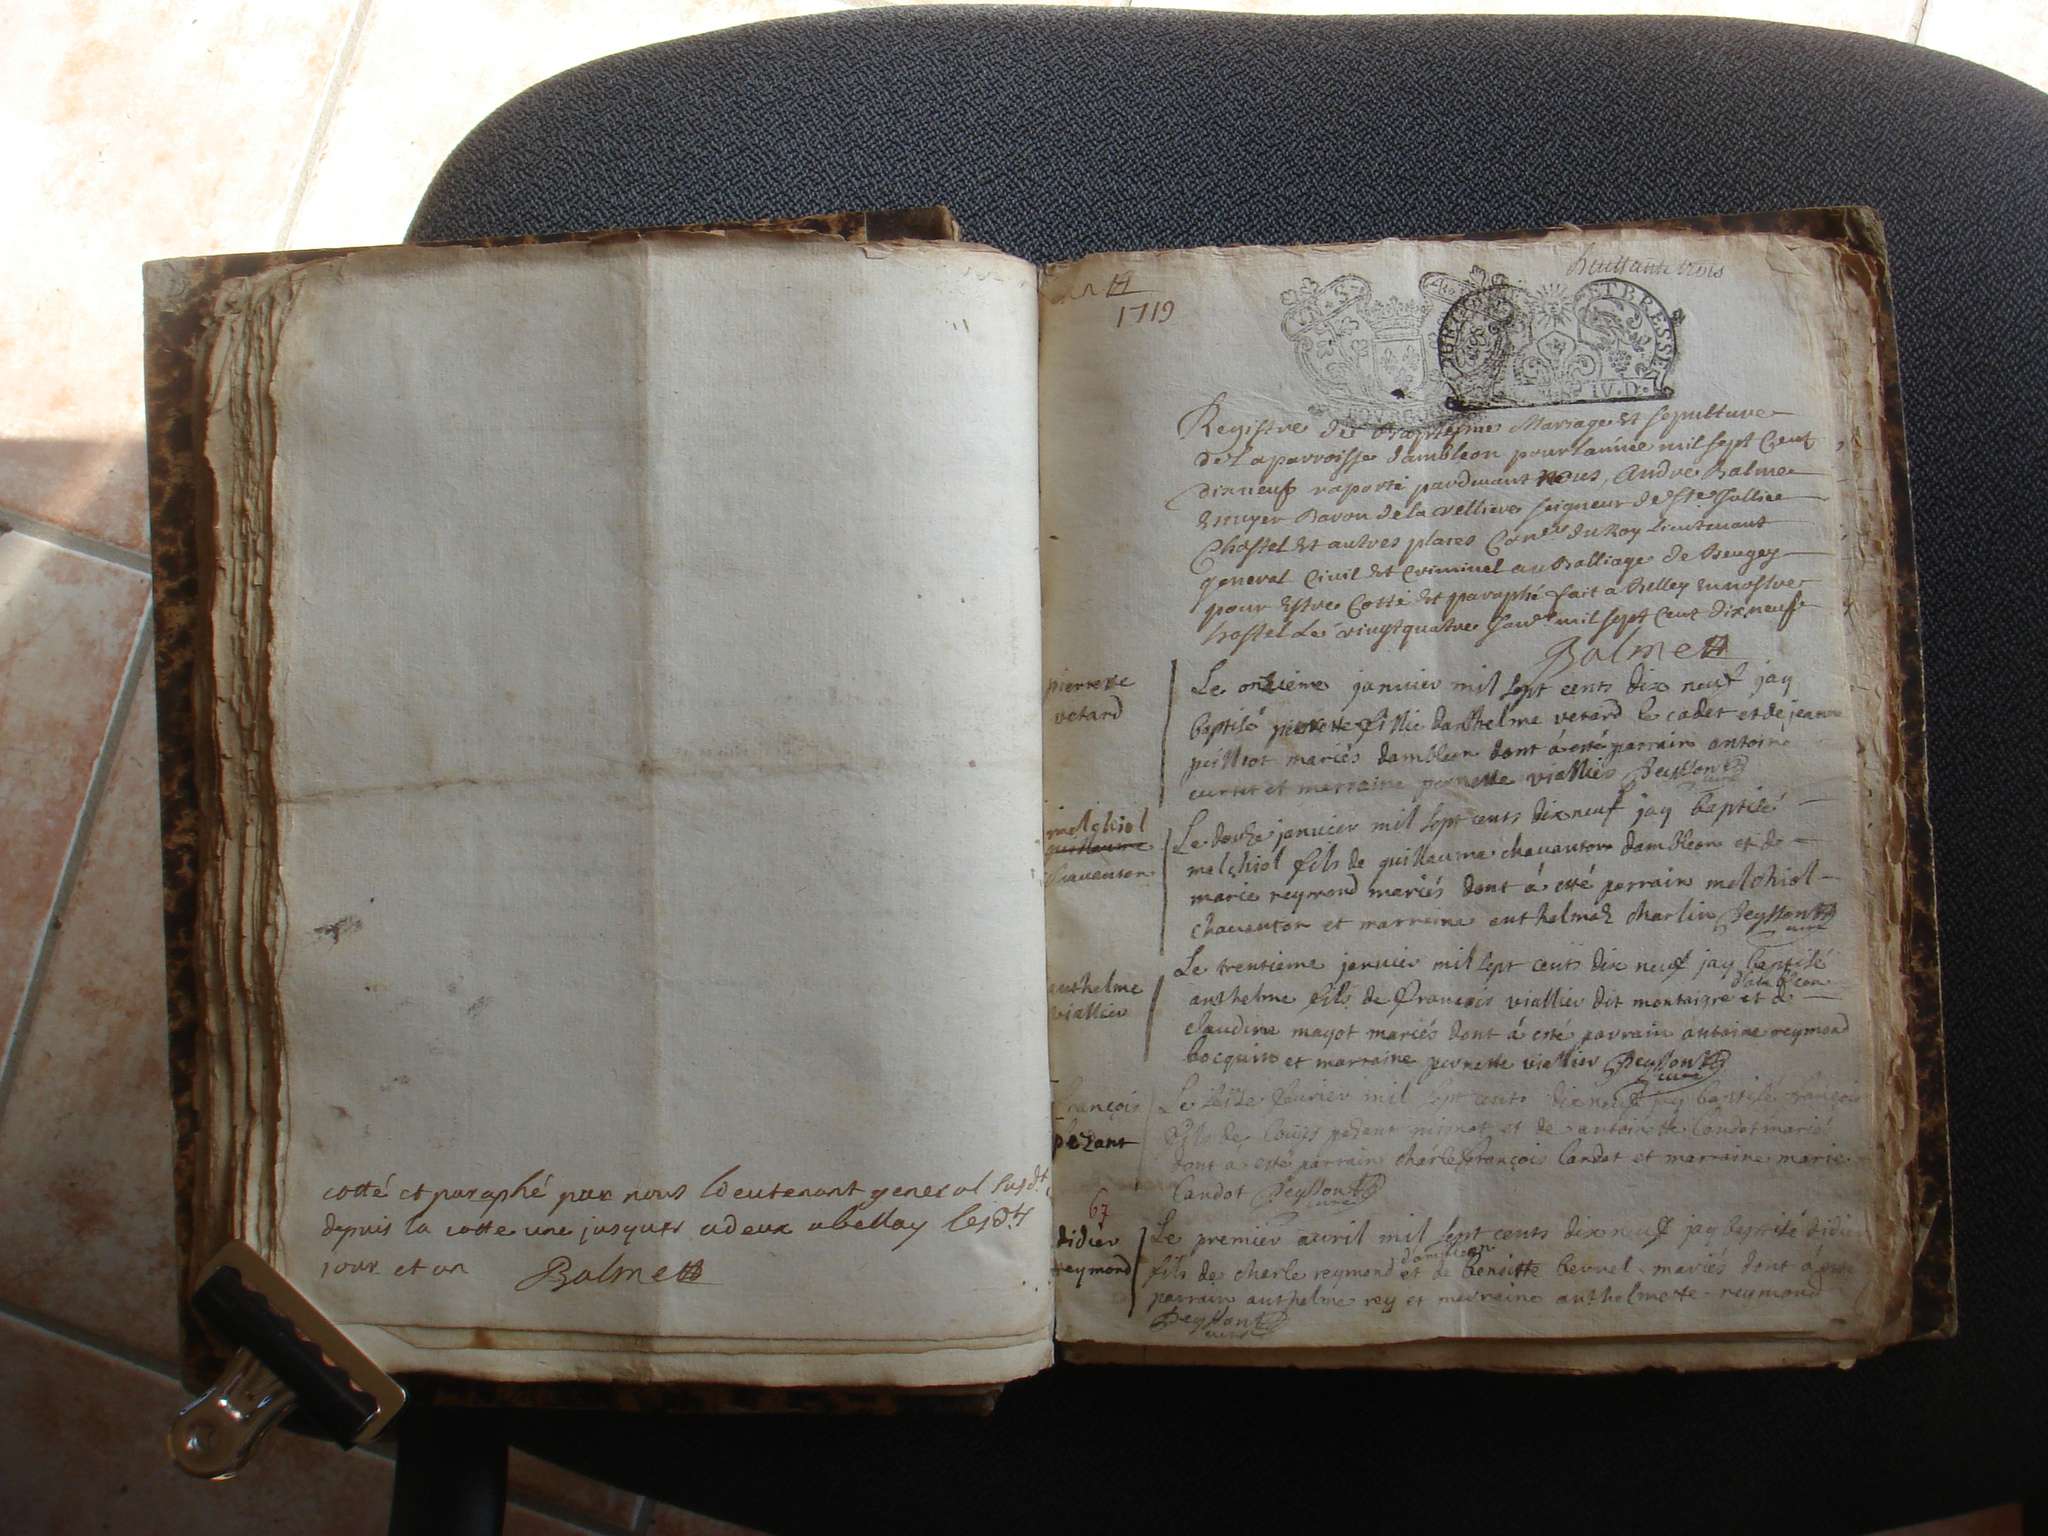 cotté et paraphé par nous lieutenant general susd.t
depuis la cotte une jusques a deux a belley lesd.ts
jour et an Balme
1719
huittante trois
BOVRGO
ET BRESSE
IV. D.
Registre de Baptesme Mariage Et sepulture
de La parroisse dambleon pour lannée mil sept Cent
dixneuf raporté pardevant Nous, Andre Balme
Escuyer Baron de la velliere seigneur de Ste Jullie
Chastel Et autres places Con.er du Roy Lieutenant
general Civil Et Criminel au Balliage de Beugey
pour Estre Cotté Et paraphé fait a Belley En nostre
hostel Le vingtquatre Janv.r mil sept Cent dix neuf
Balme
pierrette
vetard
Le onzieme janvier mil sept cents dix neuf jay
baptisé pierrette fillie danthelme vetard le cadet et de jeanne
peilliot mariés dambleon dont á esté parrain antoine
curtet et marraine pernette viallier Peysson
curé
melchiol
guillaume
chavanton
Le douze janvier mil sept cents dixneuf jay baptisé
melchiol fils de guillaume chavanton dambleon et de
marie reymond mariés dont á esté parrain melchiol
chavanton et marraine anthelmaz charlin Peysson
curé
anthelme
viallier
Le trentieme janvier mil sept cents dix neuf jay baptisé
dambleon
anthelme fils de François viallier dit montaigre et de
claudine magot mariés dont á esté parrain antoine reymond
bocquin et marraine pernette viallier Peysson
curé
françois
pezant
Le seize fevrier mil sept cents dixneuf jay baptisé françois
fils de Louis pezant et de antoinette Landot mariés
dont á esté parrain charle françois Landot et marraine marie
Landot Peysson
curé
67
didier
reymond
Le premier avril mil sept cents dix neuf jay baptisé didier
dambleon
fils de charle reymond et de benoitte bernel mariés dont á esté
parrain anthelme rey et marraine anthelmette reymond
Peysson
curé